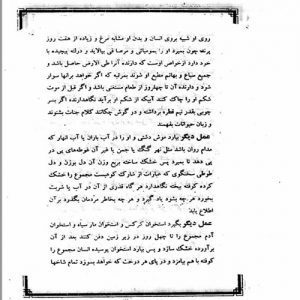 روی او شبیه بروی انسان و بدن او مشابه مرغ و زیاده از هفت روز
پرنده چون بمیرد او را بمومیائی و مرصا فی بیالاید و دراثه پیچیده با
خود دارد ازخواص اوست که دارنده آنرا طی الارض حاصل باشد و
جمیع سباع و بهائم مطیع او شوند بمرتبه که اگر خواهد برآنها سوار
شود و دارنده آن تا چهارروز از طعام مستغنی باشد و اگر قبل از موت
شکم او را چاک کنند آبیکه از شکم او برآید نگاهدارند اگر
چوبی بقدر نیم قطره برداشته و در گوش چکانند کلام جنات بشنوند
و زبان حیوانات بفهمند
عمل دیگر بیارد موش دشتی و او را در آب باران یا آب انهار که
مدام روان باشد مثل نهر گنگ یا جمن یا غیر آن غوطه‌های پی در
پی دهد تا بمیرد پس خشک ساخته بربع وزن آن دل بوزن و دل
طوطی سخنگوی که عبارات از شارک کوهیست مجموع را خشک
کرده کوفته بیخته نگاهدارد هر گاه قدری از آن در آب یا شربت
بخورد هر چه بشنود یاد گیرد و هر چه بخاطر مردمان بگذرد برآن
اطلاع یابد
عمل دیگر بگیرد استخوان کرکس و استخوان مار سیاه و استخوان
آدم مجموع را تا چهل روز در زیر زمین دفن کنند بعد از آن
برآورده خشک سازد و پس بیارد استخوان بوسیده انسان مجموع را
کوفته با هم بیامزد و در پای هر درخت که خواهد بسوزد تمام شاخها